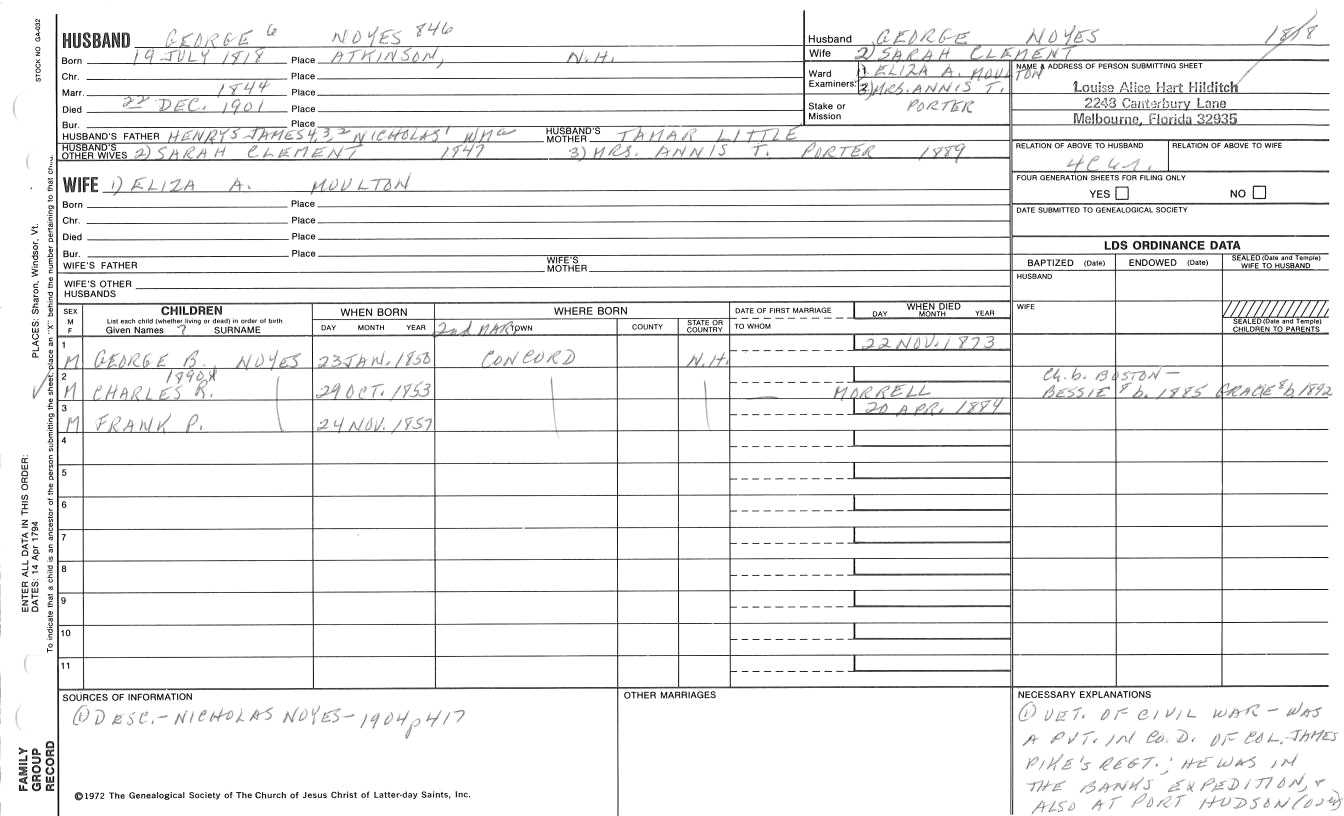 STOCK NO GA-032
HUSBAND GEORGE 6 NOYES 846
Born 19 JULY 1818 Place ATKINSON, N.H.
Chr. Place
Marr. 1844 Place
Died 22 DEC. 1901 Place
Bur. Place
HUSBAND'S FATHER HENRY5 JAMES4,3,2 NICHOLAS1 HUSBAND'S MOTHER TAMAR LITTLE
HUSBAND'S OTHER WIVES 2) SARAH CLEMENT 1847 3) MRS. ANNIS T. PORTER 1889
WIFE 1) ELIZA A. MOULTON
Born Place
Chr. Place
Died Place
Bur. Place
WIFE'S FATHER WIFE'S MOTHER
WIFE'S OTHER HUSBANDS
Husband GEORGE NOYES 1818
Wife 2) SARAH CLEMENT
Ward Examiners: 1) ELIZA A. MOULTON
3) MRS. ANNIS T.
Stake or Mission PORTER
NAME & ADDRESS OF PERSON SUBMITTING SHEET
Louise Alice Hart Hilditch
2243 Canterbury Lane
Melbourne, Florida 32935
RELATION OF ABOVE TO HUSBAND RELATION OF ABOVE TO WIFE
FOUR GENERATION SHEETS FOR FILING ONLY
YES NO
DATE SUBMITTED TO GENEALOGICAL SOCIETY
LDS ORDINANCE DATA
BAPTIZED (Date) ENDOWED (Date) SEALED (Date and Temple) WIFE TO HUSBAND
HUSBAND
WIFE
SEALED (Date and Temple) CHILDREN TO PARENTS
SEX M F CHILDREN WHEN BORN WHERE BORN DATE OF FIRST MARRIAGE WHEN DIED
List each child (whether living or dead) in order of birth
Given Names ? SURNAME DAY MONTH YEAR 2nd MAR Town COUNTY STATE OR COUNTRY TO WHOM DAY MONTH YEAR
1 M GEORGE B. NOYES 23 JAN. 1850 CONCORD N.H. 22 NOV. 1873
2 M CHARLES R. 1890 29 OCT. 1853 MORRELL
Ch. b. BOSTON —
BESSIE 8 b. 1885 GRACIE 8 b. 1892
3 M FRANK P. 24 NOV. 1857 20 APR. 1884
4
5
6
7
8
9
10
11
SOURCES OF INFORMATION
① DESC.- NICHOLAS NOYES - 1904 p 417
OTHER MARRIAGES
NECESSARY EXPLANATIONS
① VET. OF CIVIL WAR - WAS
A PVT. IN CO. D. OF COL. JAMES
PIKE'S REGT.; HE WAS IN
THE BANKS EXPEDITION, +
ALSO AT PORT HUDSON (over)
©1972 The Genealogical Society of The Church of Jesus Christ of Latter-day Saints, Inc.
FAMILY GROUP RECORD
ENTER ALL DATA IN THIS ORDER:
DATES: 14 Apr 1794
PLACES: Sharon, Windsor, Vt.
To indicate that a child is an ancestor of the person submitting the sheet, place an "X" behind the number pertaining to that child.